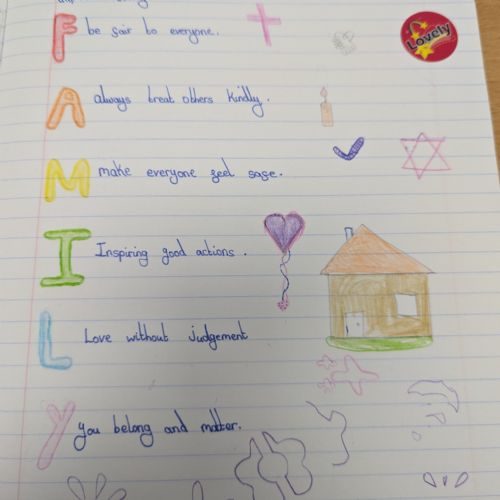 F be fair to everyone.
Lovely
A always treat others kindly.
M make everyone feel safe.
I Inspiring good actions.
L Love without judgement
Y you belong and matter.